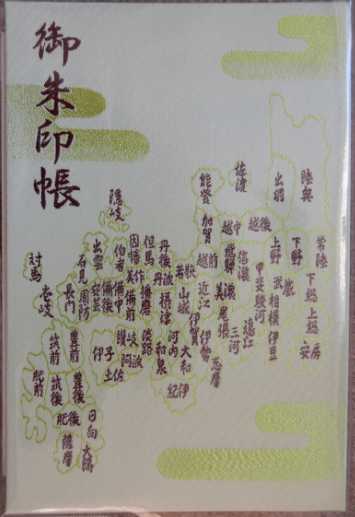 御朱印帳
陸奥
出羽
佐渡
能登
越後
越中
加賀
越前
常陸
下野
上野
下総
上総
安房
武蔵
相模
伊豆
甲斐
駿河
信濃
遠江
三河
飛騨
美濃
尾張
志摩
伊勢
伊賀
近江
若狭
山城
大和
紀伊
河内
和泉
摂津
丹波
丹後
但馬
播磨
淡路
因幡
美作
備前
伯耆
備中
備後
隠岐
出雲
安芸
石見
周防
長門
讃岐
阿波
伊予
土佐
対馬
壱岐
筑前
筑後
豊前
豊後
肥前
肥後
日向
大隅
薩摩